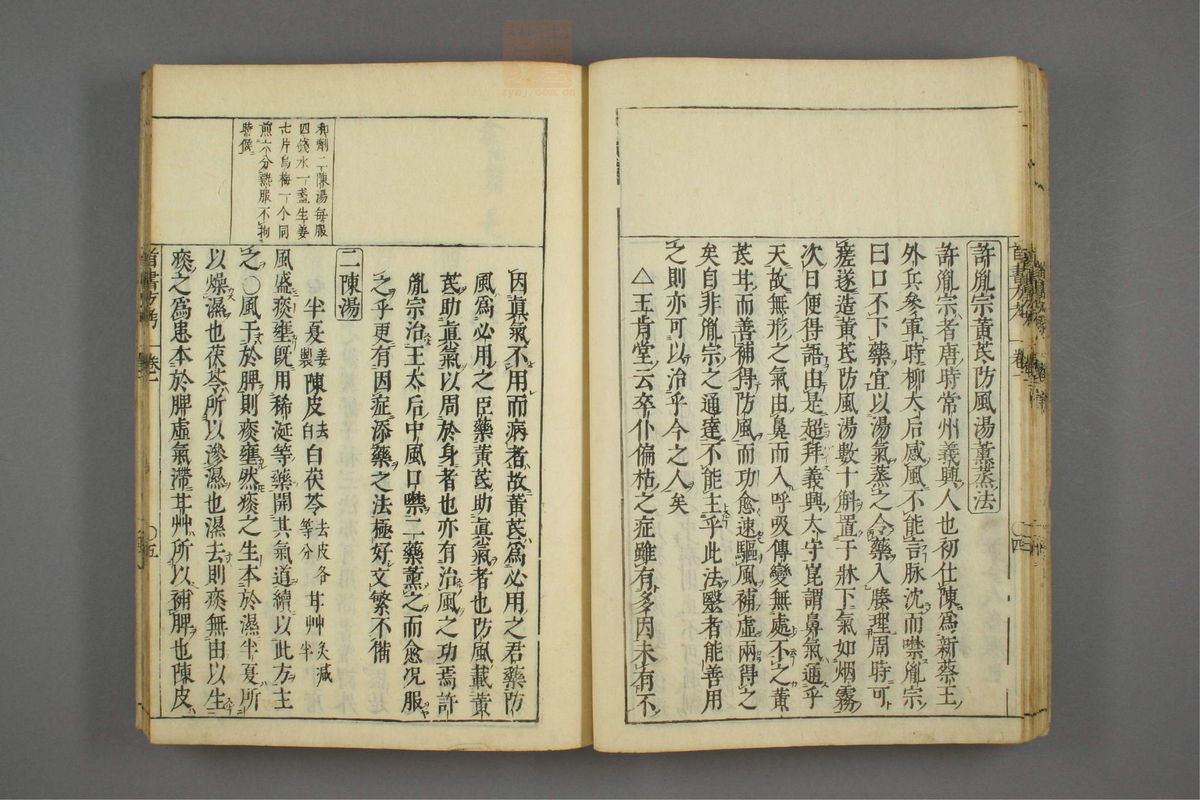 許胤宗黃芪防風湯薰蒸法
許胤宗者唐時常州義興人也初仕陳爲新蔡王
外兵參軍時柳太后感風不能言脉沈而噤胤宗
曰口不下藥宜以湯氣蒸之令藥入腠理周時可
瘥遂造黃芪防風湯數十斛置于牀下氣如烟霧
次日便得語由是超拜義興太守崑謂鼻氣通乎
天故無形之氣由鼻而入呼吸傳變無處不之黃
芪耳而善補得防風而功愈速驅風補虛兩得之
矣自非胤宗之通達不能主乎此法醫者能善用
之則亦可以治乎今之人矣
△王肯堂云卒仆偏枯之症雖有多因未有不
因眞氣不用而病者故黃芪爲必用之君藥防
風爲必用之臣藥黃芪助眞氣者也防風載黃
芪助眞氣以周於身者也亦有治風之功焉許
胤宗治王太后中風口噤二藥薰之而愈况服
之乎更有因症添藥之法極好文繁不備
和劑二陳湯每服
四錢水一盞生姜
七片烏梅一个同
煎六分熱服不拘
時候
二陳湯
半夏姜製 陳皮去白 白茯苓去皮各等分 甘艸炙減半
風盛痰壅既用稀涎等藥開其氣道續以此方主
之○風干於脾則痰壅然痰之生本於濕半夏所
以燥濕也茯苓所以滲濕也濕去則痰無由以生
痰之爲患本於脾虛氣滯甘艸所以補脾也陳皮
首書方考 卷一
○五
卷一
○四